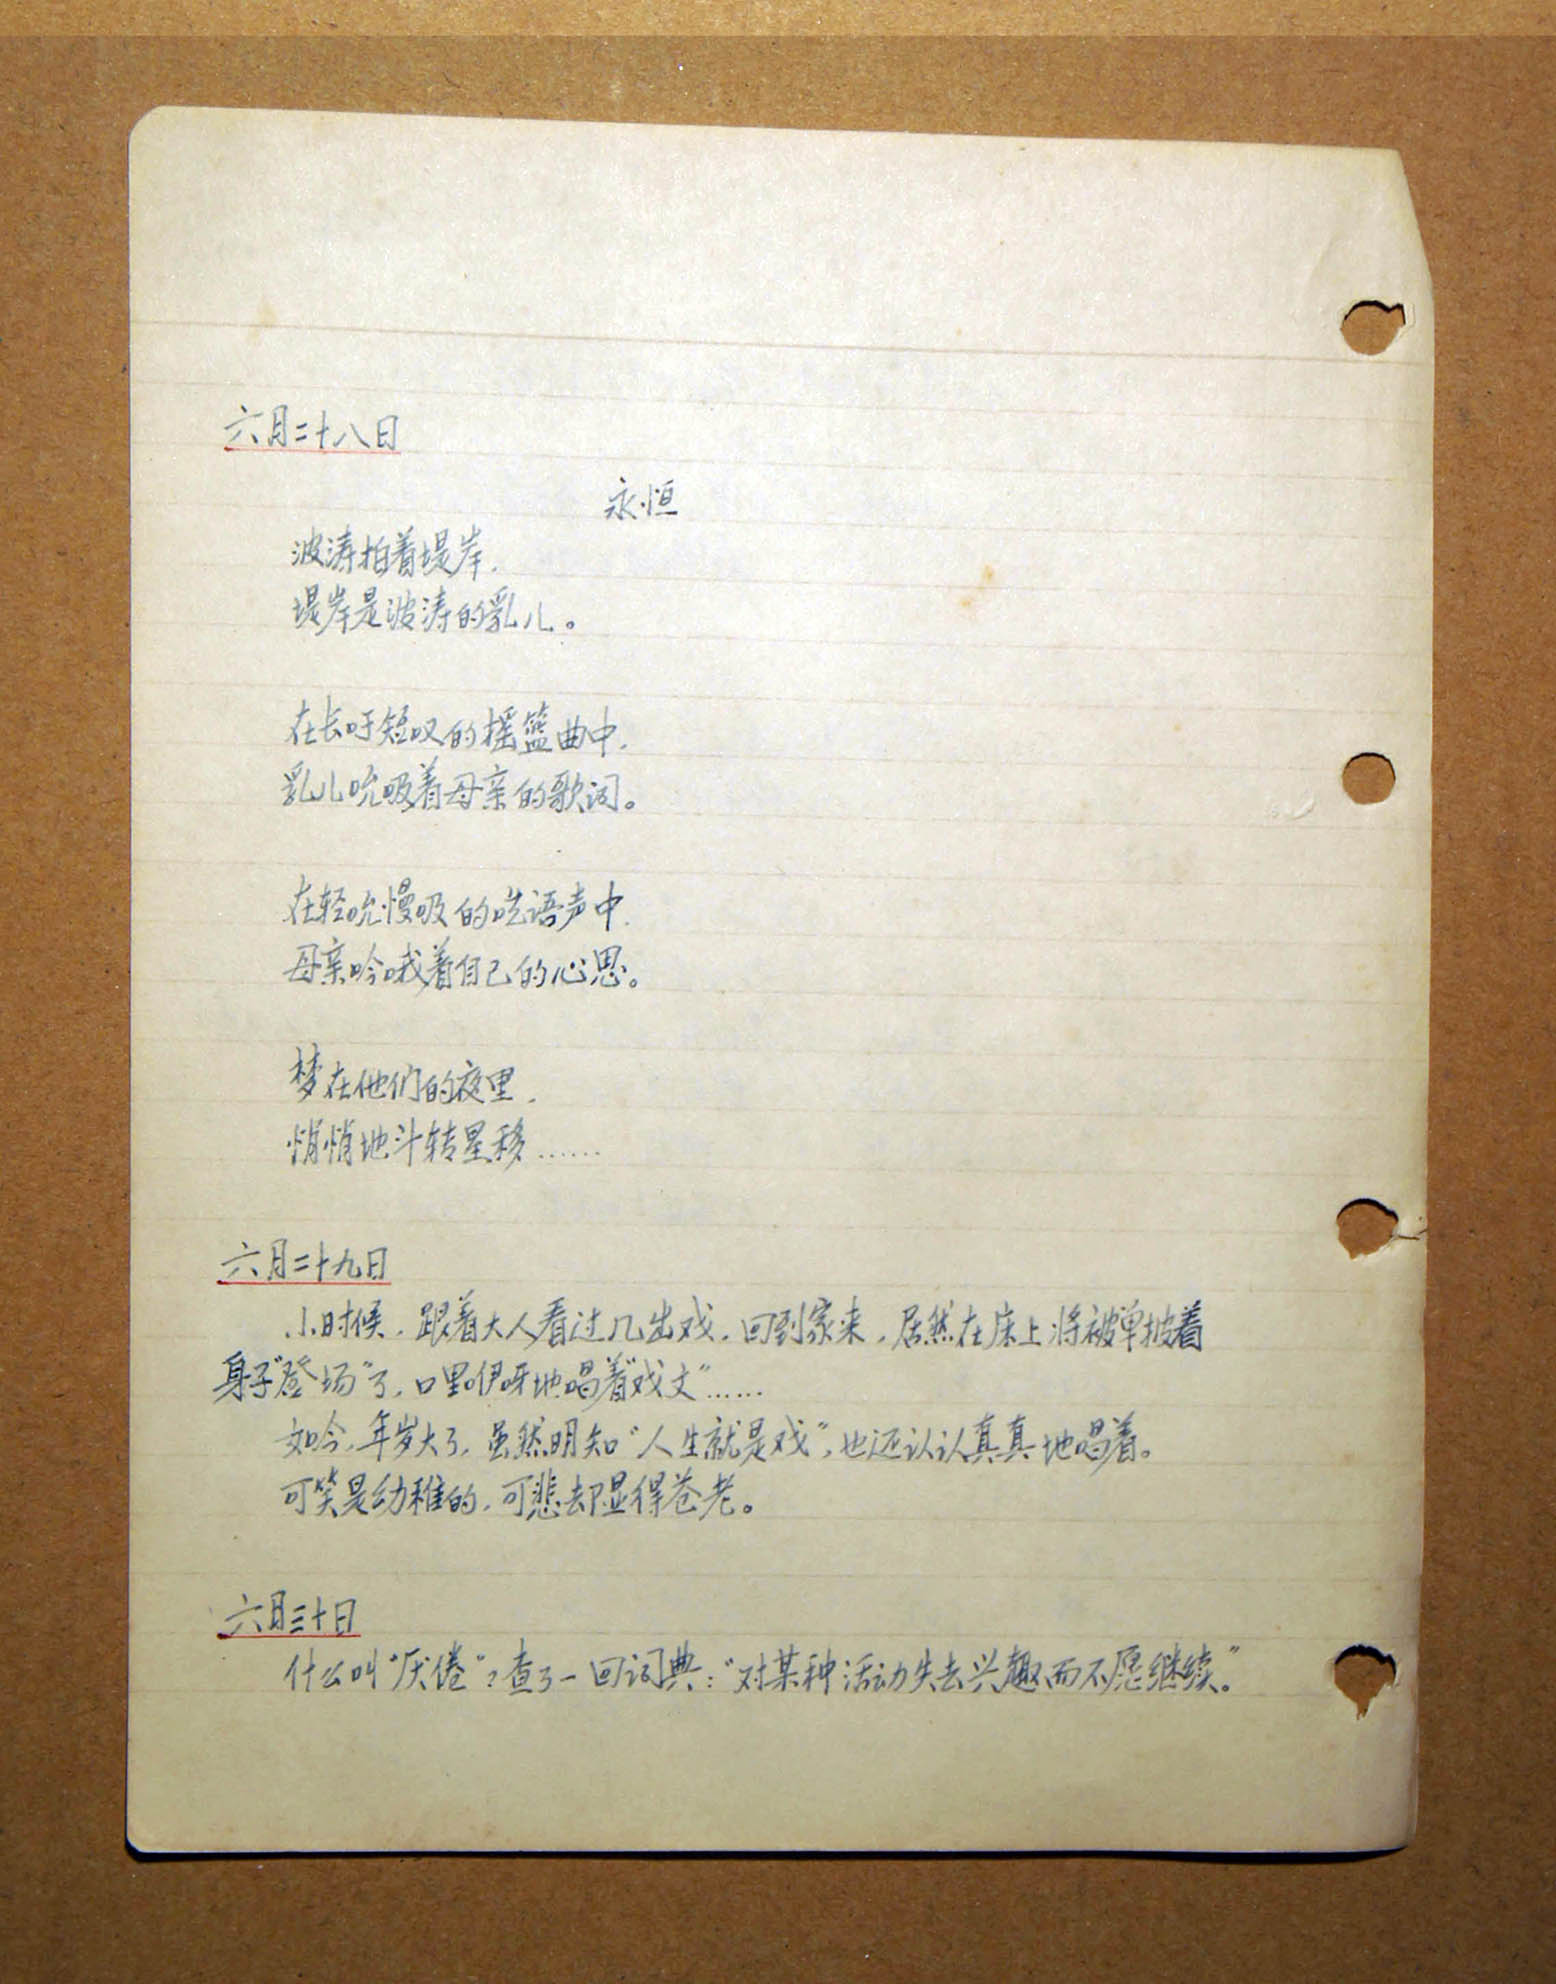 六月二十八日
永恒
波涛拍着堤岸，
堤岸是波涛的乳儿。
在长吁短叹的摇篮曲中，
乳儿吮吸着母亲的歌词。
在轻吮慢吸的呓语声中，
母亲吟哦着自己的心思。
梦在他们的夜里，
悄悄地斗转星移……
六月二十九日
小时候，跟着大人看过几出戏，回到家来，居然在床上将被单披着
身子“登场”了，口里咿呀地唱着“戏文”……
如今，年岁大了，虽然明知“人生就是戏”，也还认认真真地唱着。
可笑是幼稚的，可悲却显得苍老。
六月三十日
什么叫“厌倦”？查了一回词典：“对某种活动失去兴趣而不愿继续”。